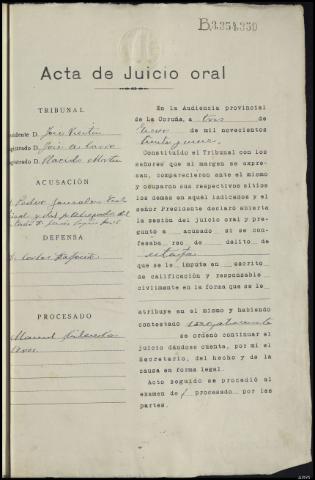 B.3.354.330
Acta de Juicio oral
TRIBUNAL
sidente D. José
gistrado D. José de
gistrado D. Placido
ACUSACIÓN
D. Pedro Gonzalez
DEFENSA
D. Carlos
PROCESADO
Manuel
En la Audiencia provincial
de La Coruña, a tres de
de mil novecientos
treinta y uno.
Constituído el Tribunal con los
señores que al margen se expre-
san, comparecieron ante el mismo
y ocuparon sus respectivos sitios
los demás en aquél indicados y el
señor Presidente declaró abierta
la sesión del juicio oral y pre-
guntó a acusado si se con-
fesaba reo de delito de
estafa
que se le imputa en escrito
de calificación y responsable
civilmente en la forma que se le
atribuye en el mismo y habiendo
contestado negativamente
se ordenó continuar el
juicio dándose cuenta, por mí el
Secretario, del hecho y de la
causa en forma legal.
Acto seguido se procedió al
examen del procesado por las
partes.